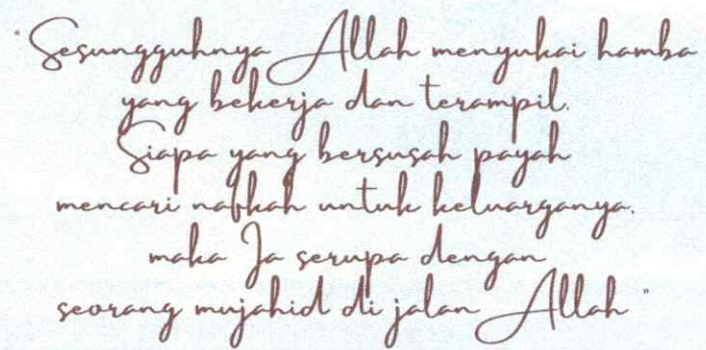 "Sesungguhnya Allah menyukai hamba
yang bekerja dan terampil.
Siapa yang bersusah payah
mencari nafkah untuk keluarganya.
maka Ia serupa dengan
seorang mujahid di jalan Allah"